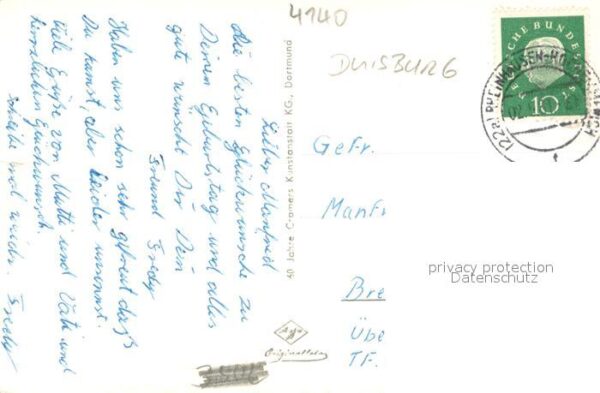 4140
DUISBURG
Lieber Manfred
Die besten Glückwünsche zu
Deinem Geburtstag und alles
gute wünscht Dir Dein
Freund Fredy
Haben uns schon sehr gefreut dass
Du kamst, aber leider umsonst.
Viele Grüße von Mutti und Vati und
herzlichen Glückwunsch.
schreibe mal wieder. Fredy
60 Jahre Cramers Kunstanstalt KG., Dortmund
Agfa
Originalfoto
GeFr.
ManFr
Bre
Übe
TF.
DEUTSCHE BUNDESPOST
10
(22a) RHEINHAUSEN-HO
privacy protection
Datenschutz